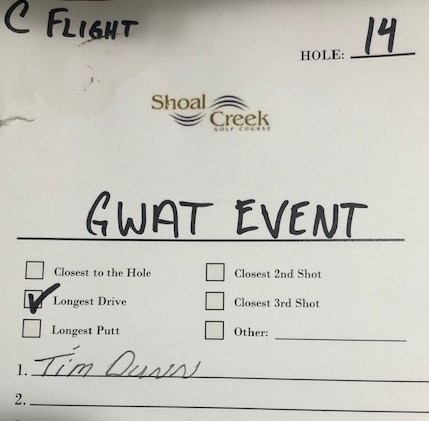 C FLIGHT
HOLE: 14
Shoal Creek
GOLF COURSE
GWAT EVENT
Closest to the Hole
Closest 2nd Shot
Longest Drive
Closest 3rd Shot
Longest Putt
Other:
1. Tim Dunn
2.